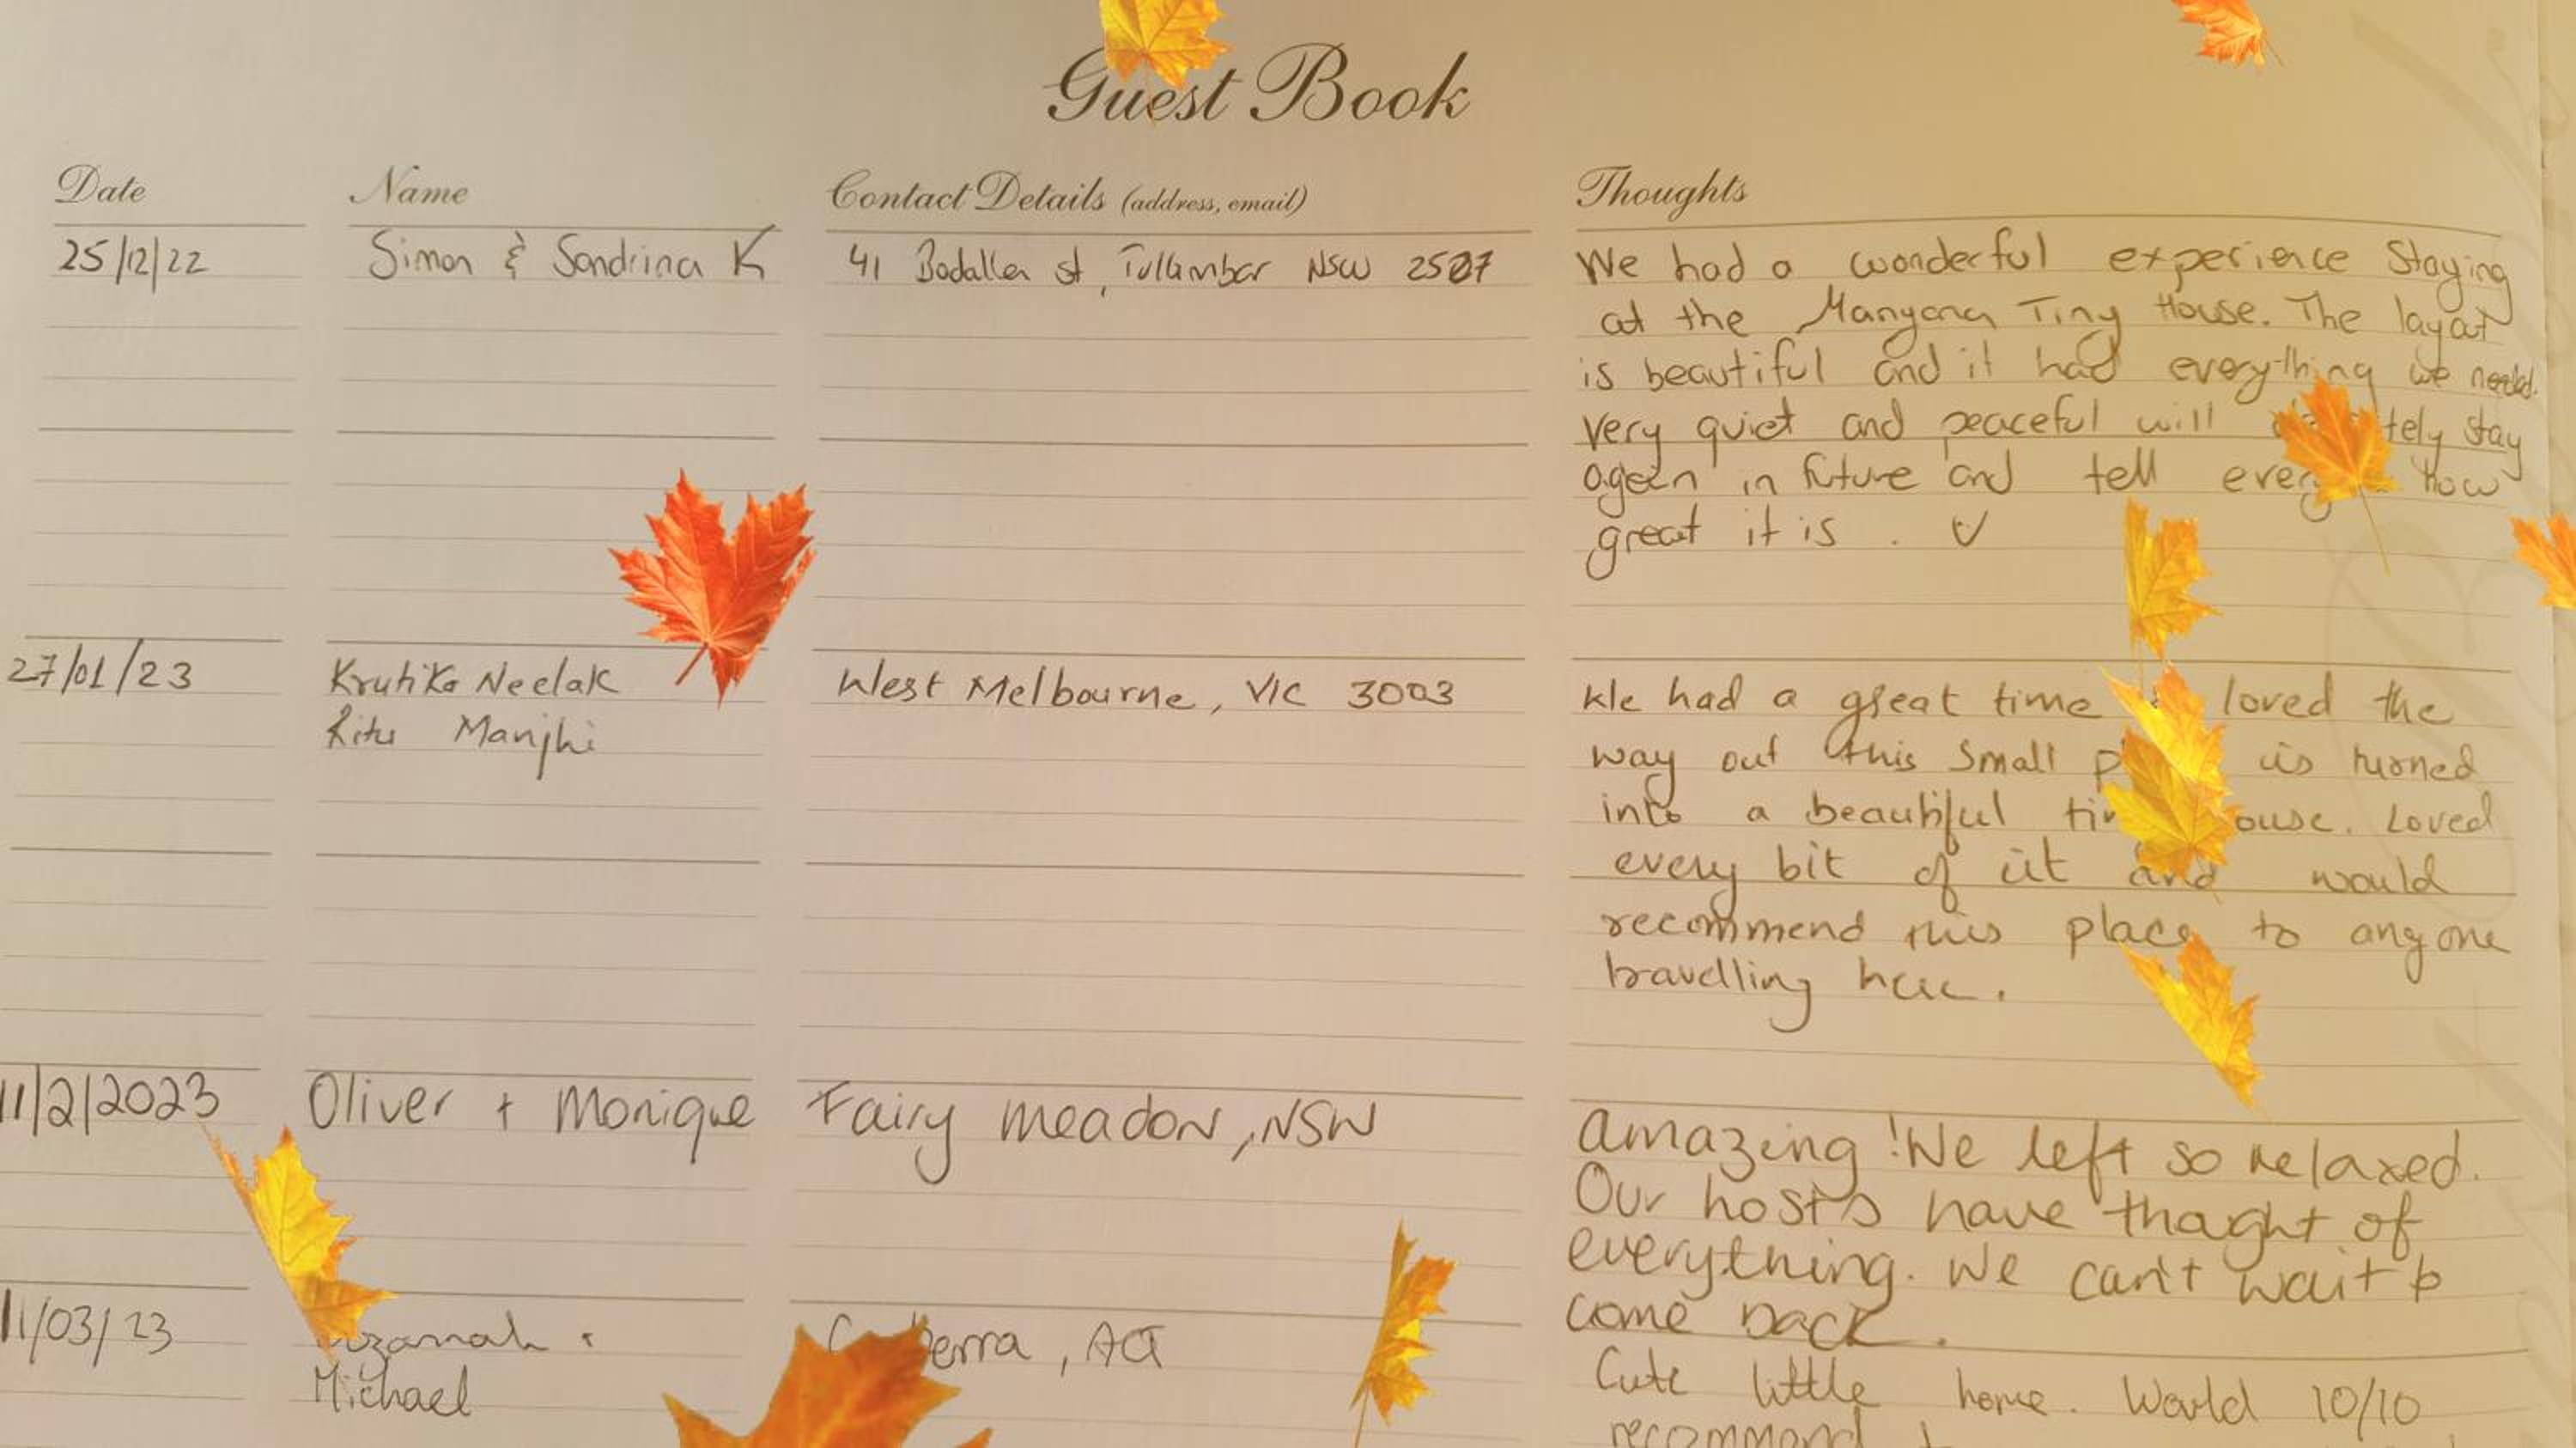 Guest Book
Date Name Contact Details (address, email) Thoughts
25/12/22 Simon & Sandrina K 41 Badalla st, Tullimbar NSW 2527 We had a wonderful experience Staying
at the Manyana Tiny House. The layout
is beautiful and it had everything we needed.
Very quiet and peaceful will stay
in future and tell how
great it is .
27/01/23 Krutika Neelak West Melbourne, VIC 3003 We had a great time loved the
Ritu Manjhi way out this small is turned
into a beautiful Loved
every bit of it and would
recommend this place to anyone
travelling here.
11/2/2023 Oliver + Monique Fairy meadow, NSW amazing! We left so relaxed.
Our hosts have thought of
everything. We can't wait to
come back.
11/03/23 , ACT
Michael Cute little home. Would 10/10
recommend